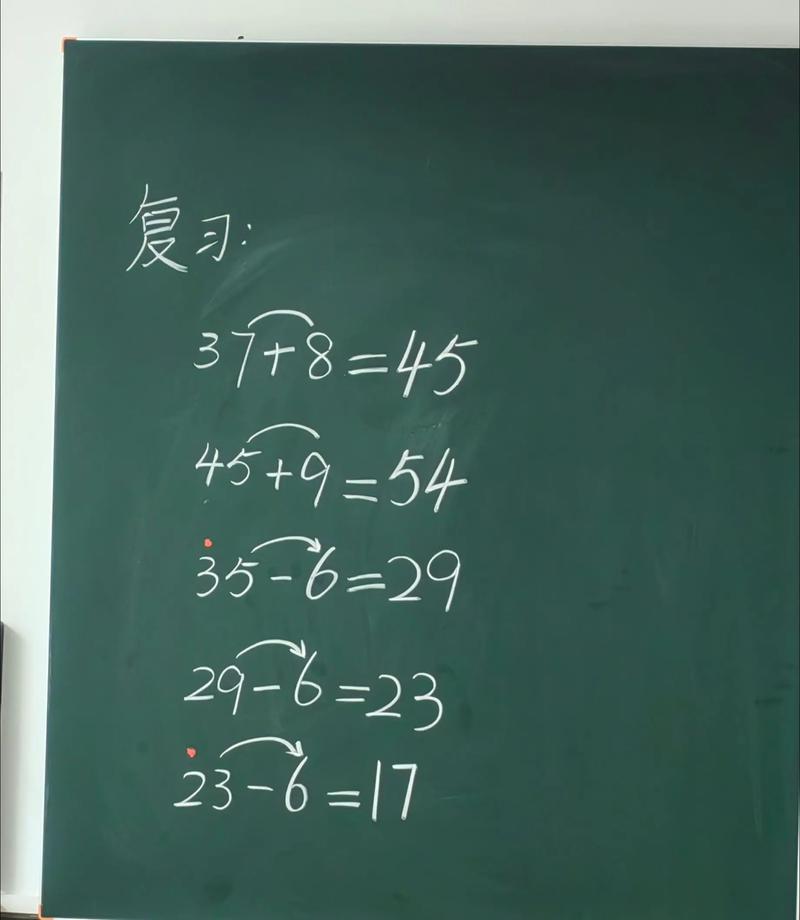 复习:
37+8=45
45+9=54
35-6=29
29-6=23
23-6=17